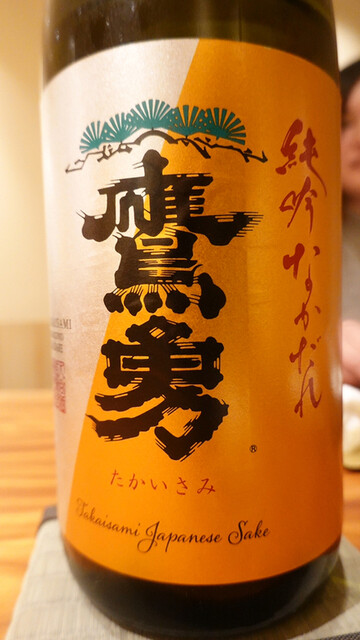 純吟なかだれ
鷹勇
®
たかいさみ
Takaisami Japanese Sake